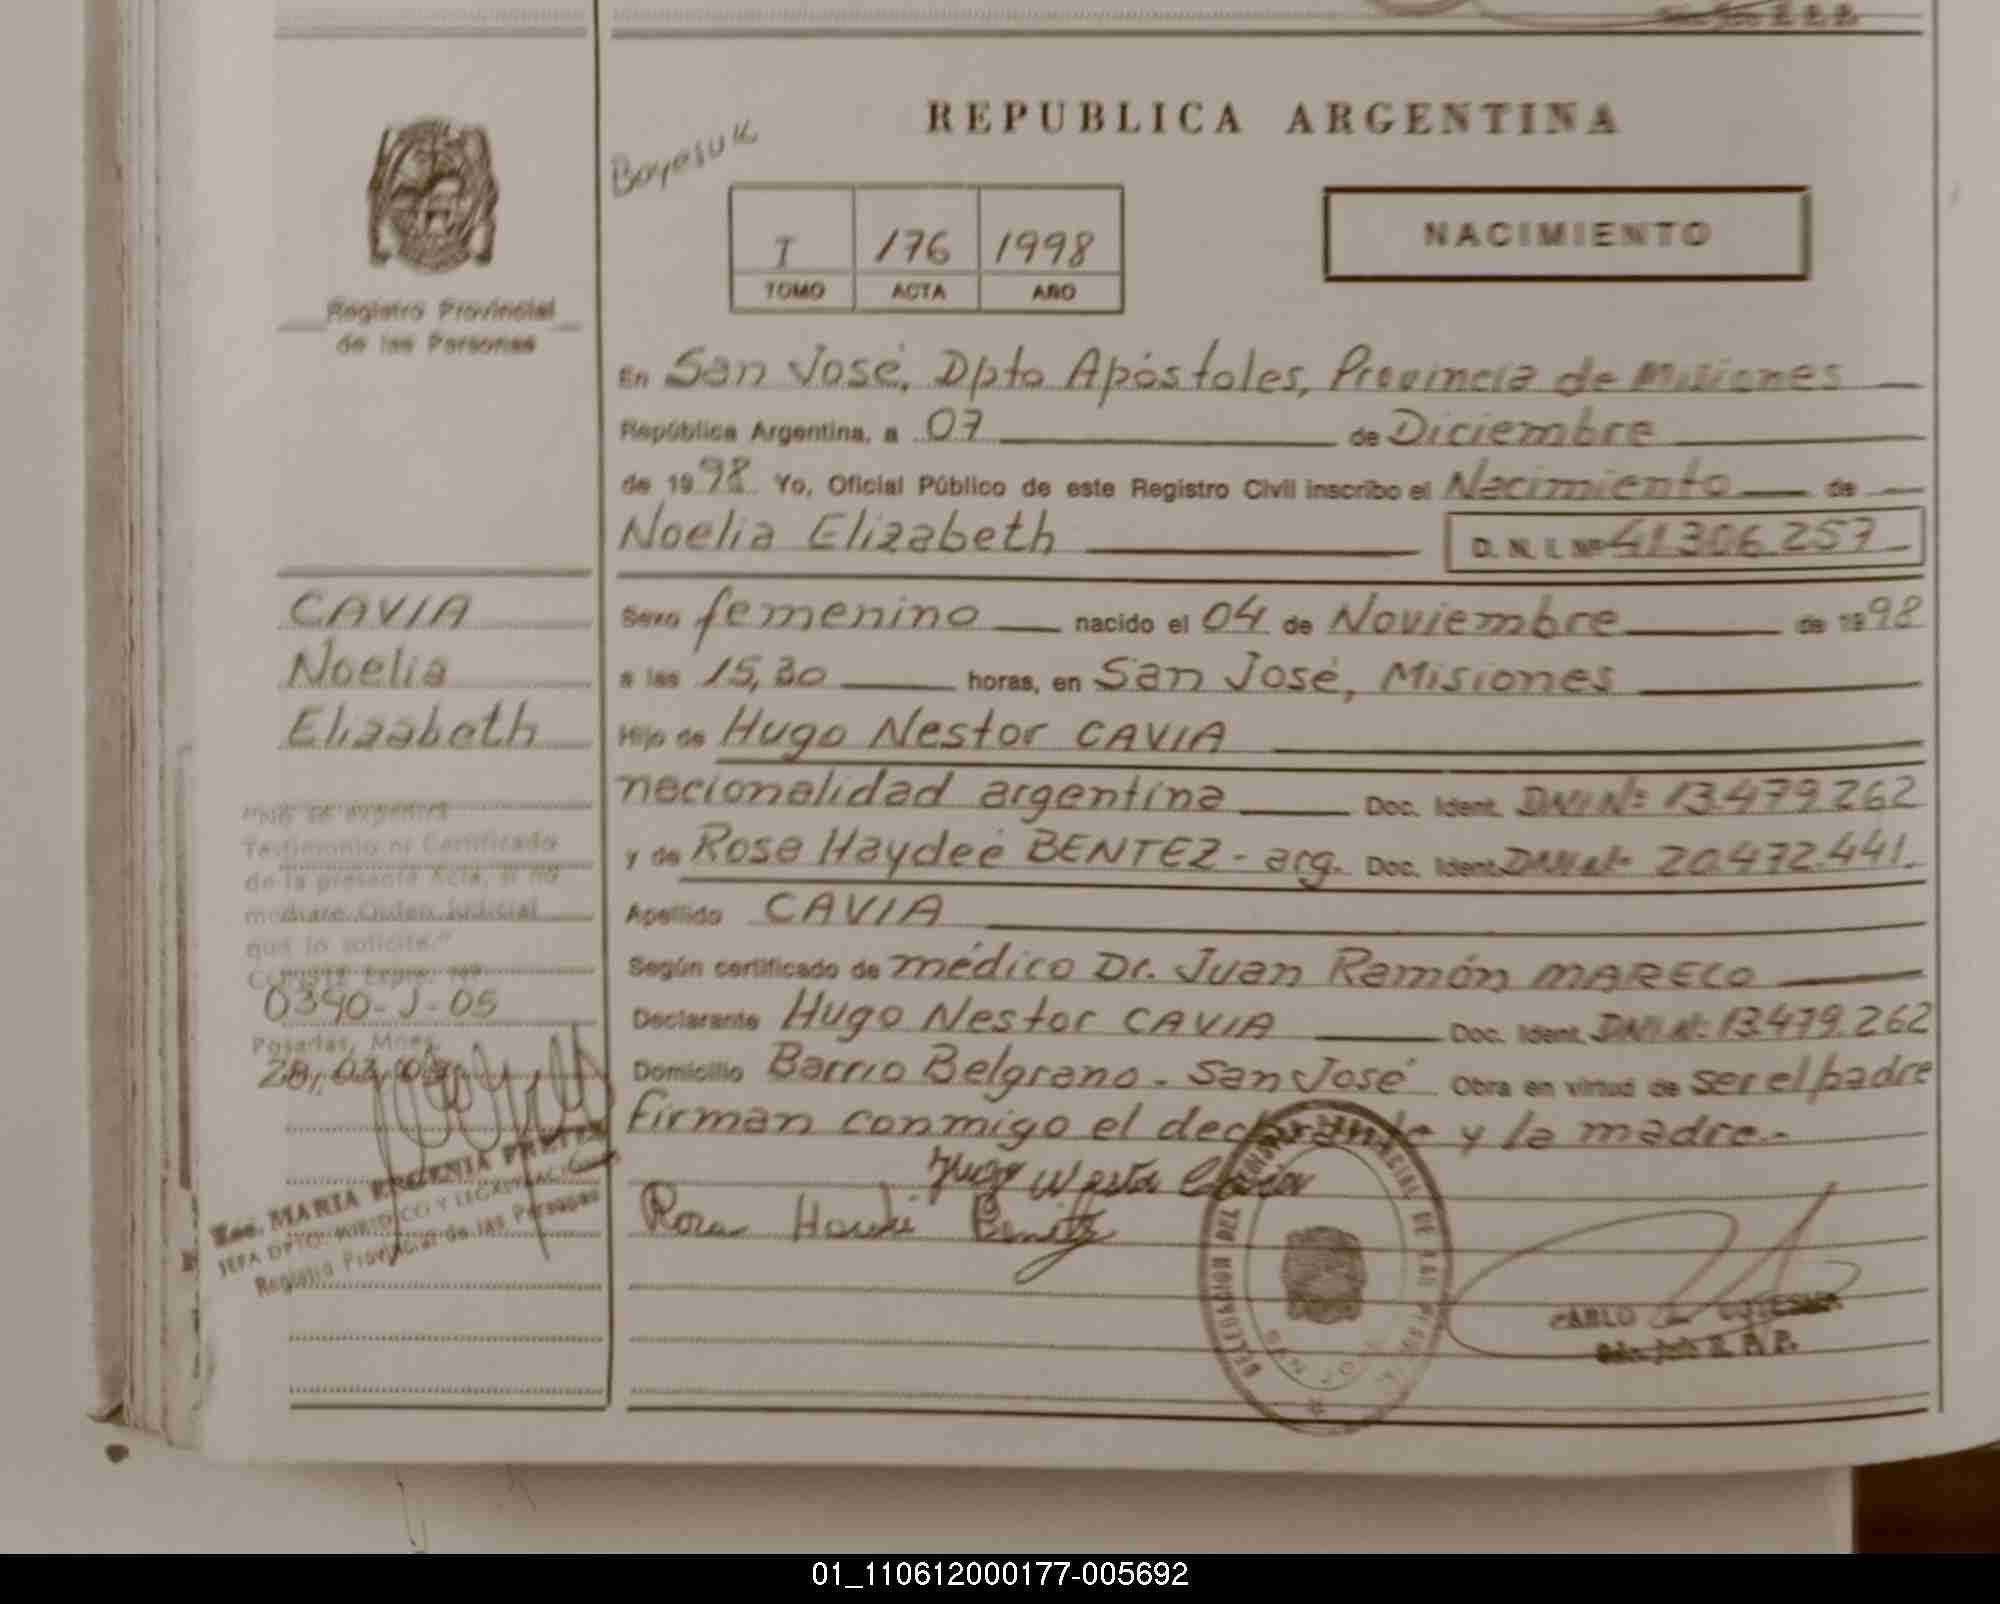 REPUBLICA ARGENTINA
I 176 1998
TOMO ACTA AÑO
NACIMIENTO
Registro Provincial
de las Personas
En San José, Dpto Apóstoles, Provincia de Misiones
República Argentina, a 07 de Diciembre
de 1998 Yo, Oficial Público de este Registro Civil inscribo el Nacimiento de
Noelia Elizabeth D. N. I. Nº 41306257
CAVIA
Noelia
Elizabeth
Sexo femenino nacido el 04 de Noviembre de 1998
a las 15,30 horas, en San José, Misiones
Hijo de Hugo Nestor CAVIA
nacionalidad argentina Doc. Ident. DNI Nº: 13.479.262
y de Rosa Haydeé BENTEZ - arg. Doc. Ident. DNI Nº 20.472.441.
Apellido CAVIA
Según certificado de médico Dr. Juan Ramón MARECO
Declarante Hugo Nestor CAVIA Doc. Ident. DNI Nº: 13.479.262
Domicilio Barrio Belgrano - San José Obra en virtud de ser el padre
firman conmigo el declarante y la madre.-
"No se expedirá
Testimonio ni Certificado
de la presente Acta, si no
mediare Orden Judicial
que lo solicite."
0340-J-05
Posadas, Mnes.
28,02,05
MARIA EUGENIA
JEFA DPTO. JURIDICO Y LEGALIZACIONES
Registro Provincial de las Personas
Rosa Benitez
01_110612000177-005692